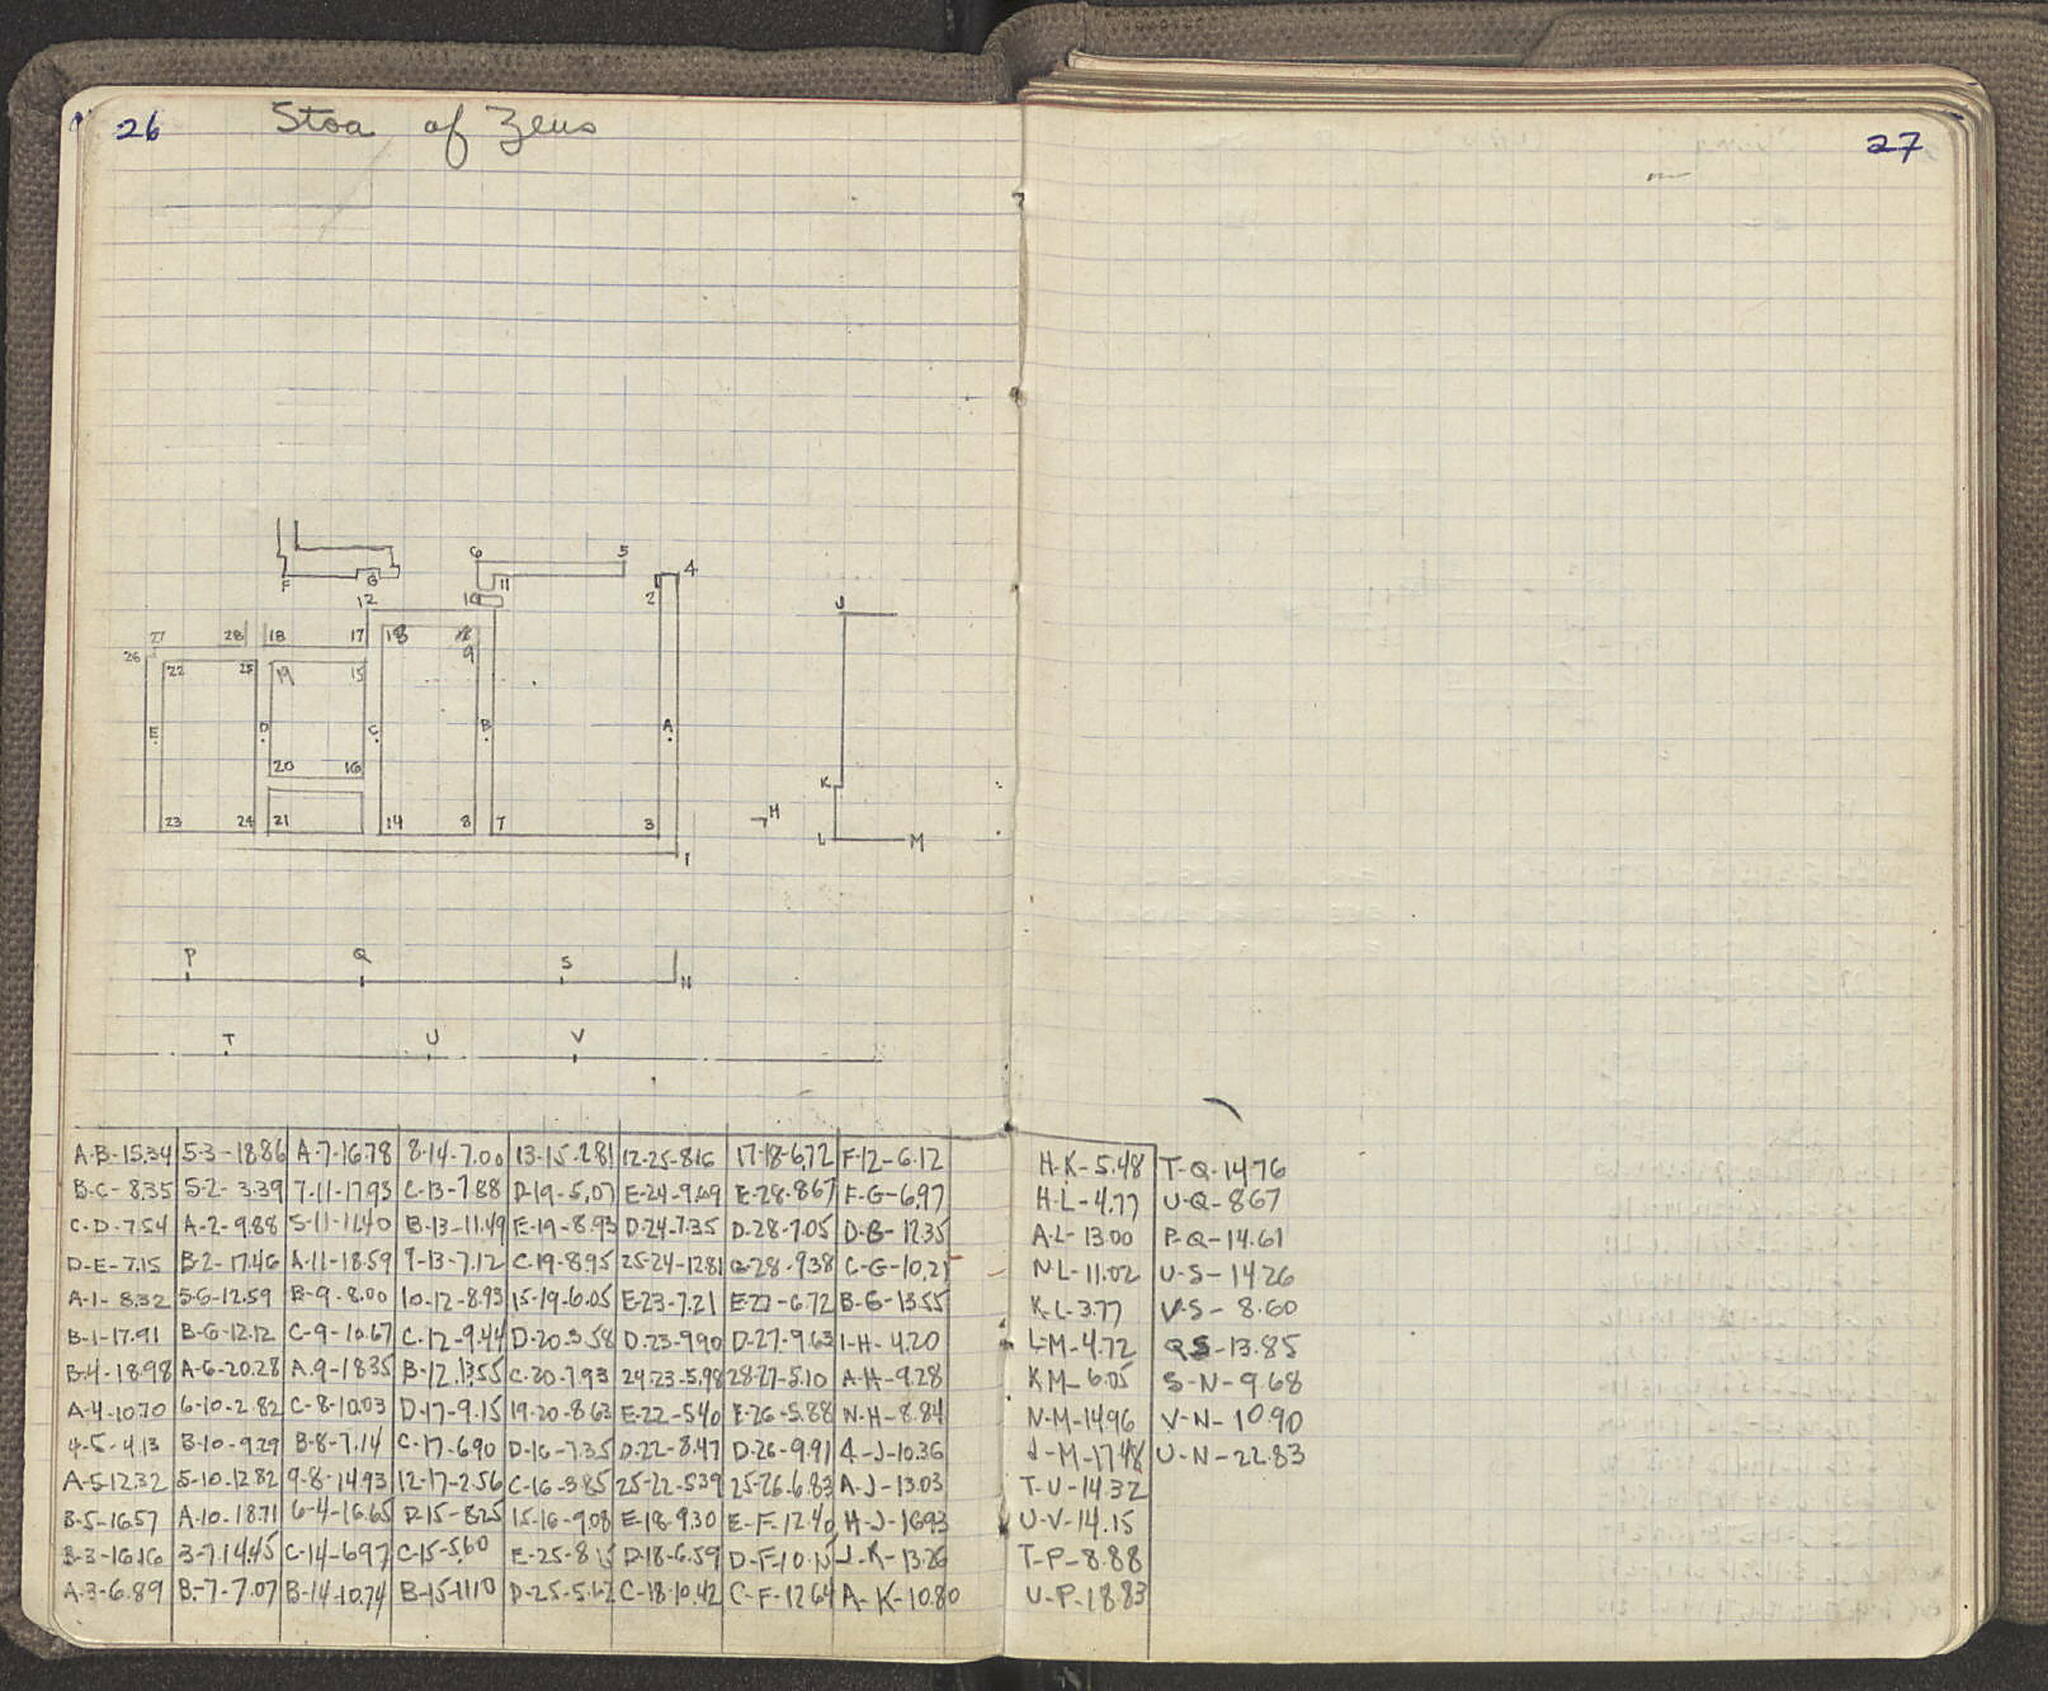 26
Stoa of Zeus
27
6
5
4
F
G
11
2
12
10
J
27
28
18
17
18
9
26
22
25
19
15
E
D
C
B
A
20
16
K
H
23
24
21
14
8
7
3
L
M
1
P
Q
S
N
T
U
V
A-B-15.34 5-3-18.86 A-7-16.78 8-14-7.00 13-15-2.81 12-25-8.16 17-18-6.72 F-12-6.12 H-K-5.48 T-Q-14.76
B-C-8.35 5-2-3.39 7-11-17.93 C-13-7.88 D-19-5.07 E-24-9.69 E-28-8.67 F-G-6.97 H-L-4.77 U-Q-8.67
C-D-7.54 A-2-9.88 5-11-11.40 B-13-11.49 E-19-8.93 D-24-7.35 D-28-7.05 D-B-12.35 A-L-13.00 P-Q-14.61
D-E-7.15 B-2-17.46 A-11-18.59 9-13-7.12 C-19-8.95 25-24-12.81 28-9.38 C-G-10.21 N-L-11.02 U-S-14.26
A-1-8.32 5-6-12.59 B-9-8.00 10-12-8.93 15-19-6.05 E-23-7.21 E-27-6.72 B-G-13.55 K-L-3.77 V-S-8.60
B-1-17.91 B-6-12.12 C-9-10.67 C-12-9.44 D-20-3.58 D-23-9.90 D-27-9.63 1-H-4.20 L-M-4.72 QS-13.85
B-4-18.98 A-6-20.28 A-9-18.35 B-12-13.55 C-20-7.93 24-23-5.98 28-27-5.10 A-H-9.28 KM-6.05 S-N-9.68
A-4-10.70 6-10-2.82 C-8-10.03 D-17-9.15 19-20-8.63 E-22-5.40 E-26-5.88 N-H-8.84 N-M-14.96 V-N-10.90
4-5-4.13 B-10-9.29 B-8-7.14 C-17-6.90 D-16-7.35 D-22-8.47 D-26-9.91 4-J-10.36 J-M-17.48 U-N-22.83
A-5-12.32 5-10-12.82 9-8-14.93 12-17-2.56 C-16-3.85 25-22-5.39 25-26-6.83 A-J-13.03 T-U-14.32
B-5-16.57 A-10-18.71 6-4-16.65 D-15-8.25 15-16-9.08 E-18-9.30 E-F-12.40 H-J-16.93 U-V-14.15
B-3-16.16 3-7-14.45 C-14-6.97 C-15-5.60 E-25-8.15 D-18-6.59 D-F-10.15 J-K-13.26 T-P-8.88
A-3-6.89 B-7-7.07 B-14-10.74 B-15-11.10 D-25-5.62 C-18-10.42 C-F-12.64 A-K-10.80 U-P-18.83